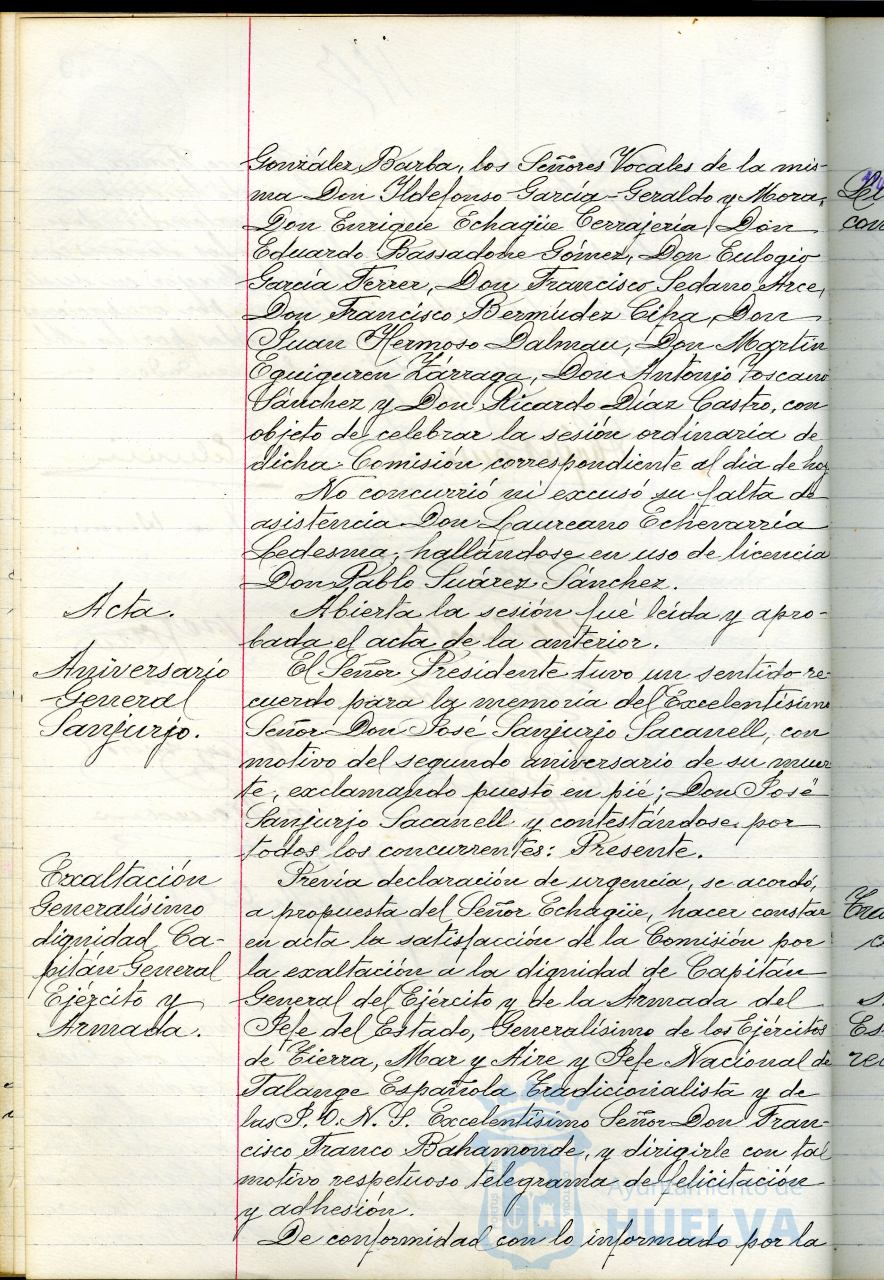 González Barba, los Señores Vocales de la mis-
ma Don Ildefonso García-Geraldo y Mora,
Don Enrique Echagüe Cerrajería, Don
Eduardo Bassadone Gómez, Don Eulogio
García Ferrer, Don Francisco Sedano Arce,
Don Francisco Bermúdez Cifa, Don
Juan Hermoso Dalmau, Don Martín
Eguiguren Zárraga, Don Antonio Toscano
Sánchez y Don Ricardo Díaz Castro, con
objeto de celebrar la sesión ordinaria de
dicha Comisión correspondiente al día de hoy
No concurrió ni excusó su falta de
asistencia Don Laureano Echevarría
Ledesma, hallándose en uso de licencia
Don Pablo Suárez Sánchez.
Acta.
Abierta la sesión fué leída y apro-
bada el acta de la anterior.
Aniversario
General
Sanjurjo.
El Señor Presidente tuvo un sentido re-
cuerdo para la memoria del Excelentísimo
Señor Don José Sanjurjo Sacanell, con
motivo del segundo aniversario de su muer
te, exclamando puesto en pié; Don José
Sanjurjo Sacanell y contestándose por
todos los concurrentes: Presente.
Exaltación
Generalísimo
dignidad Ca-
pitán General
Ejército y
Armada.
Previa declaración de urgencia, se acordó,
a propuesta del Señor Echagüe, hacer constar
en acta la satisfacción de la Comisión por
la exaltación a la dignidad de Capitán
General del Ejército y de la Armada del
Jefe del Estado, Generalísimo de los Ejércitos
de Tierra, Mar y Aire y Jefe Nacional de
Falange Española Tradicionalista y de
las J. O. N. S. Excelentísimo Señor Don Fran-
cisco Franco Bahamonde, y dirigirle con tal
motivo respetuoso telegrama de felicitación
y adhesión.
De conformidad con lo informado por la
Ayuntamiento de
HUELVA